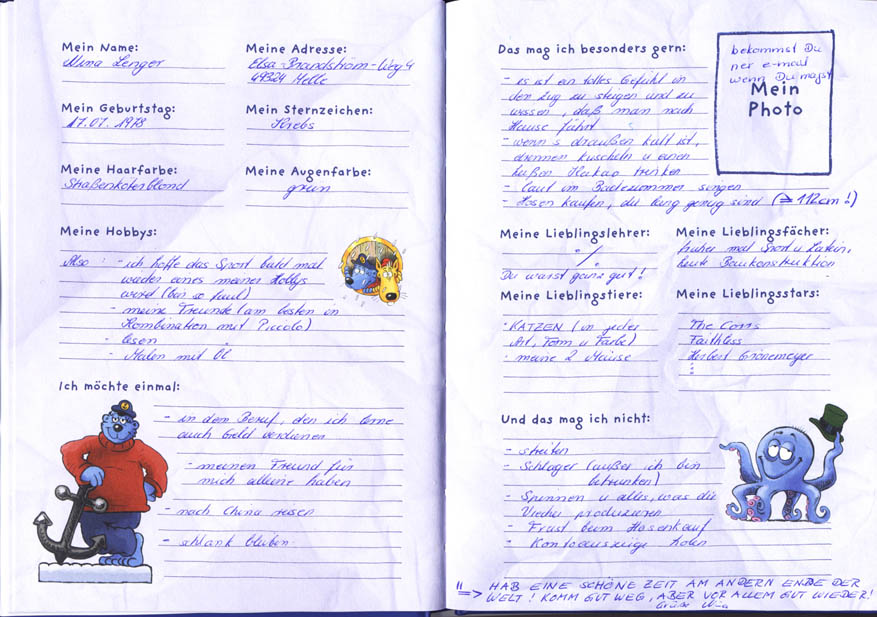 Mein Name:
Nina Lenger
Meine Adresse:
Elsa-Brandström-Weg 4
49324 Melle
Mein Geburtstag:
17.07.1978
Mein Sternzeichen:
Krebs
Meine Haarfarbe:
Straßenköterblond
Meine Augenfarbe:
grün
Meine Hobbys:
Also : - ich hoffe das Sport bald mal
wieder eines meiner Hobbys
wird (bin so faul)
- meine Freunde (am besten in
Kombination mit Piccolo)
- lesen
- Malen mit Öl
Ich möchte einmal:
- in dem Beruf, den ich lerne
auch Geld verdienen
- meinen Freund für
mich alleine haben
- nach China reisen
- schlank bleiben
Das mag ich besonders gern:
- es ist ein tolles Gefühl in
den Zug zu steigen und zu
wissen, daß man nach
Hause fährt
- wenn's draußen kalt ist,
drinnen kuscheln u einen
heißen Kakao trinken
- laut im Badezimmer singen
- Hosen kaufen, die lang genug sind (⇒ 112cm!)
bekommst Du
ner e-mail
wenn Du magst
Mein
Photo
Meine Lieblingslehrer:
./.
Du warst ganz gut!
Meine Lieblingsfächer:
früher mal Sport u Latein,
heute Baukonstruktion
Meine Lieblingstiere:
- KATZEN (in jeder
Art, Form u Farbe)
- meine 2 Mäuse
Meine Lieblingsstars:
The Corrs
Faithless
Herbert Grönemeyer
Und das mag ich nicht:
- streiten
- Schlager (außer ich bin
betrunken)
- Spinnen u alles, was die
Viecher produzieren
- Frust beim Hosenkauf
- Kontoauszüge holen
!! ⇒ HAB EINE SCHÖNE ZEIT AM ANDERN ENDE DER
WELT! KOMM GUT WEG, ABER VOR ALLEM GUT WIEDER!
Grüße Nina